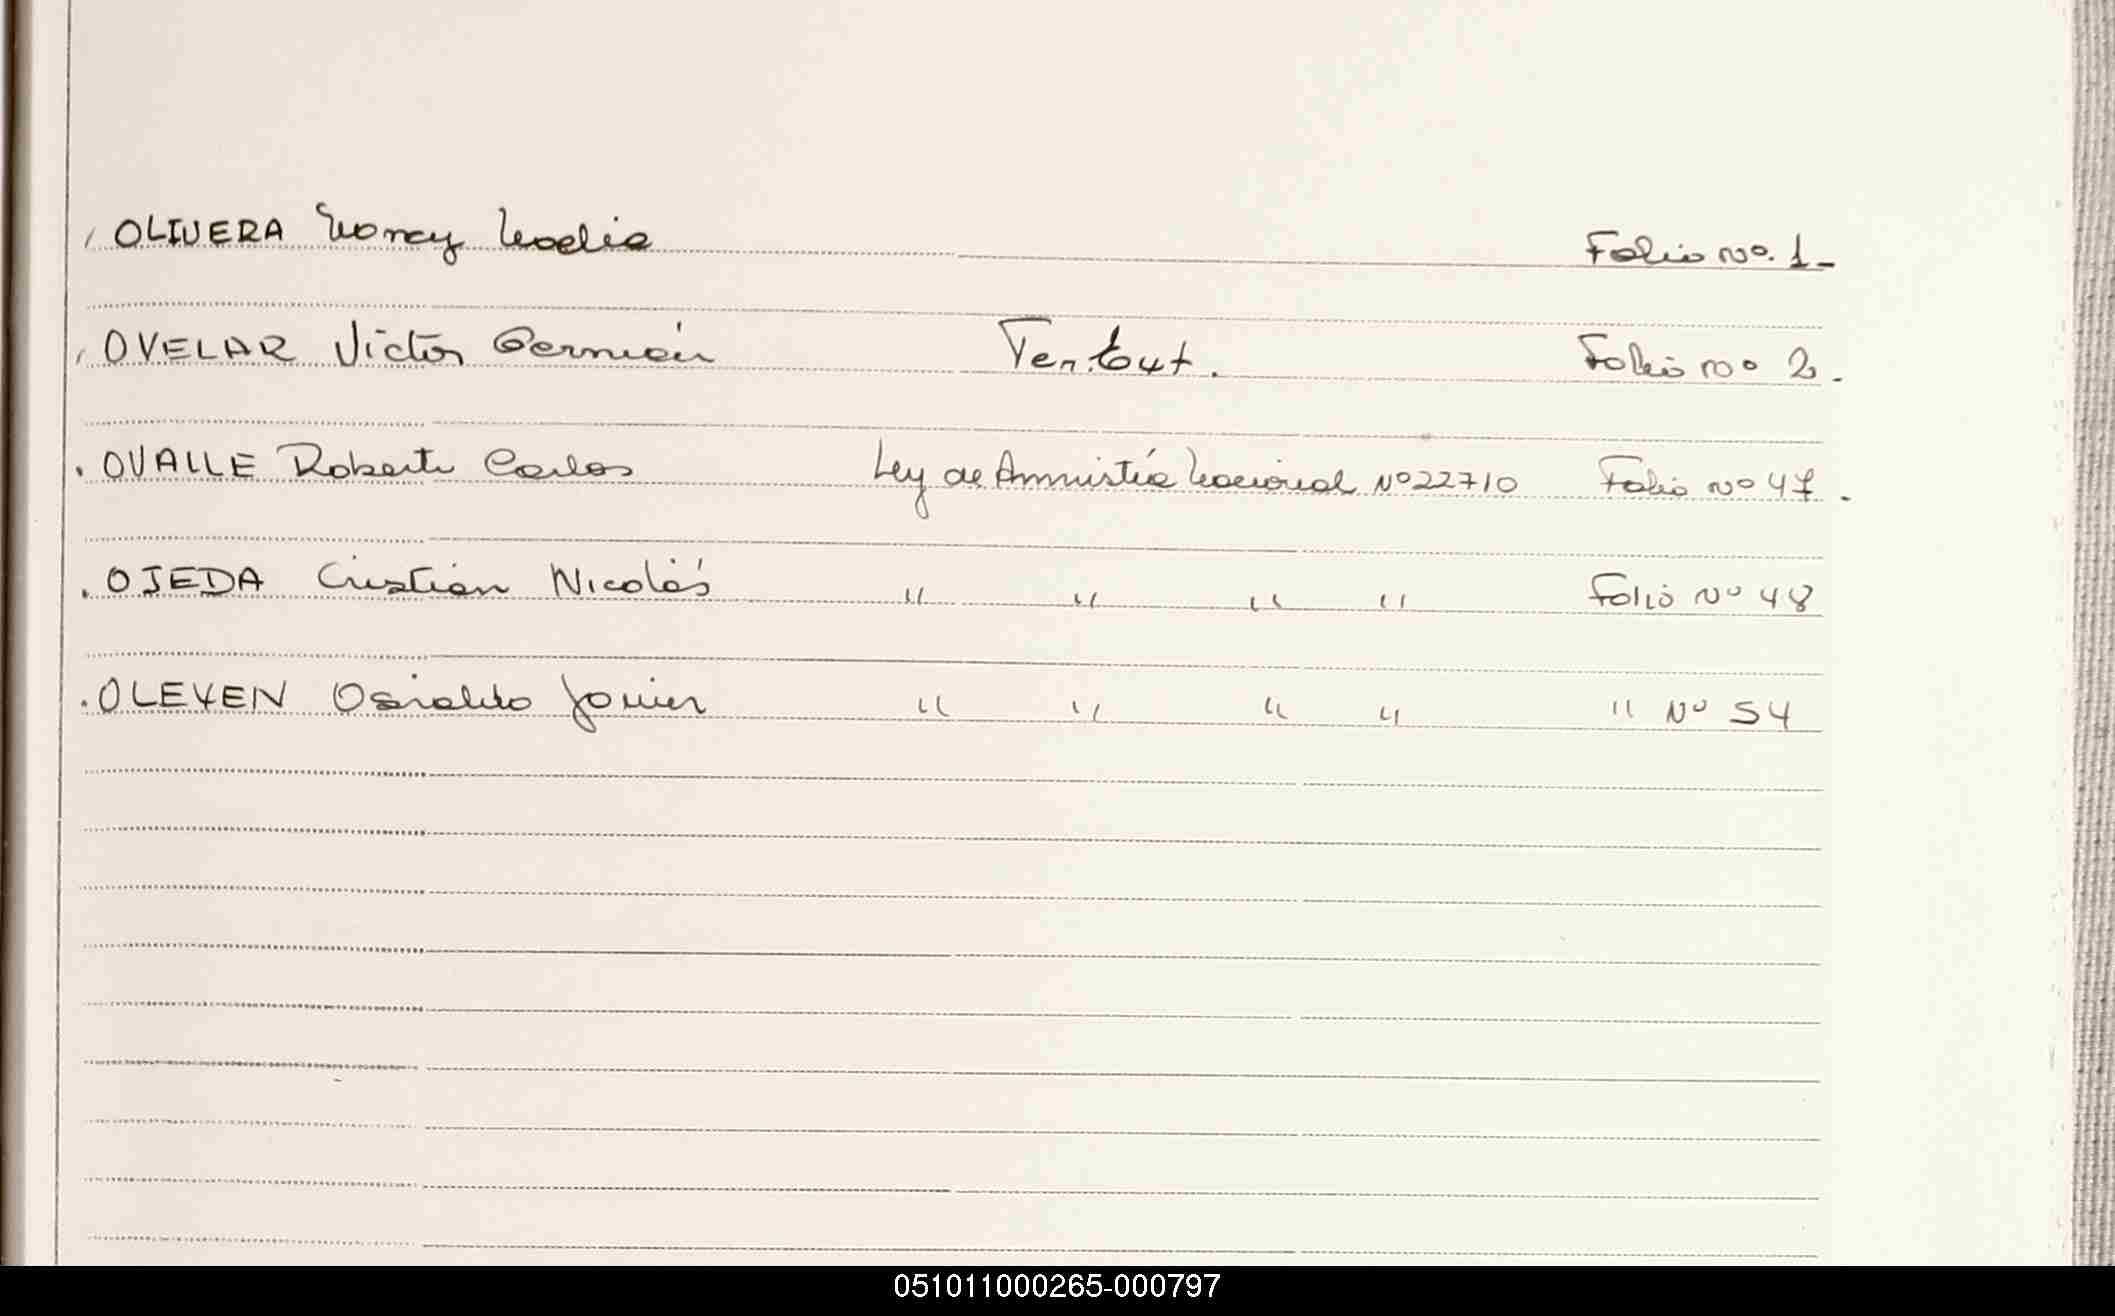 OLIVERA Nancy Noelia Folio Nº. 1-
OVELAR Victor Germián Ten. Folio nº 2.
. OVALLE Roberto Carlos Ley de Amnistía Nacional Nº 22710 Folio Nº 47.
. OJEDA Cristian Nicolás " " " " Folio Nº 48
. OLEYEN Osvaldo Javier " " " " " Nº 54
051011000265-000797